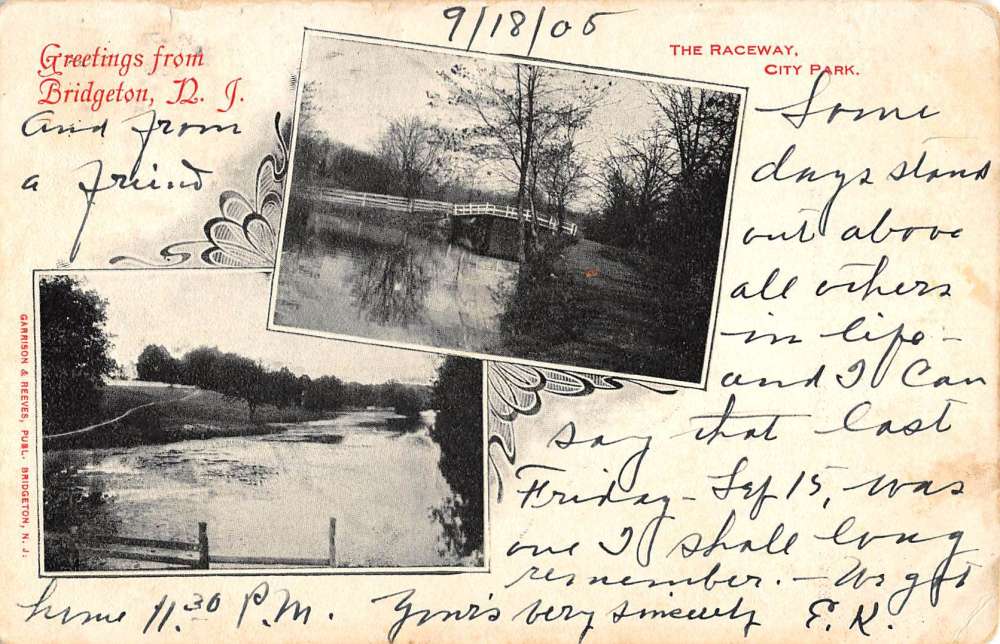 9/18/05
Greetings from
Bridgeton, N. J.
And from
a friend
THE RACEWAY,
CITY PARK.
Some
days stand
out above
all others
in life -
and I can
say that last
Friday - Sep 15, was
one I shall long
remember. - We got
home 11.30 P.M. Yours very sincerely E. K.
GARRISON & REEVES, PUBL. BRIDGETON, N. J.